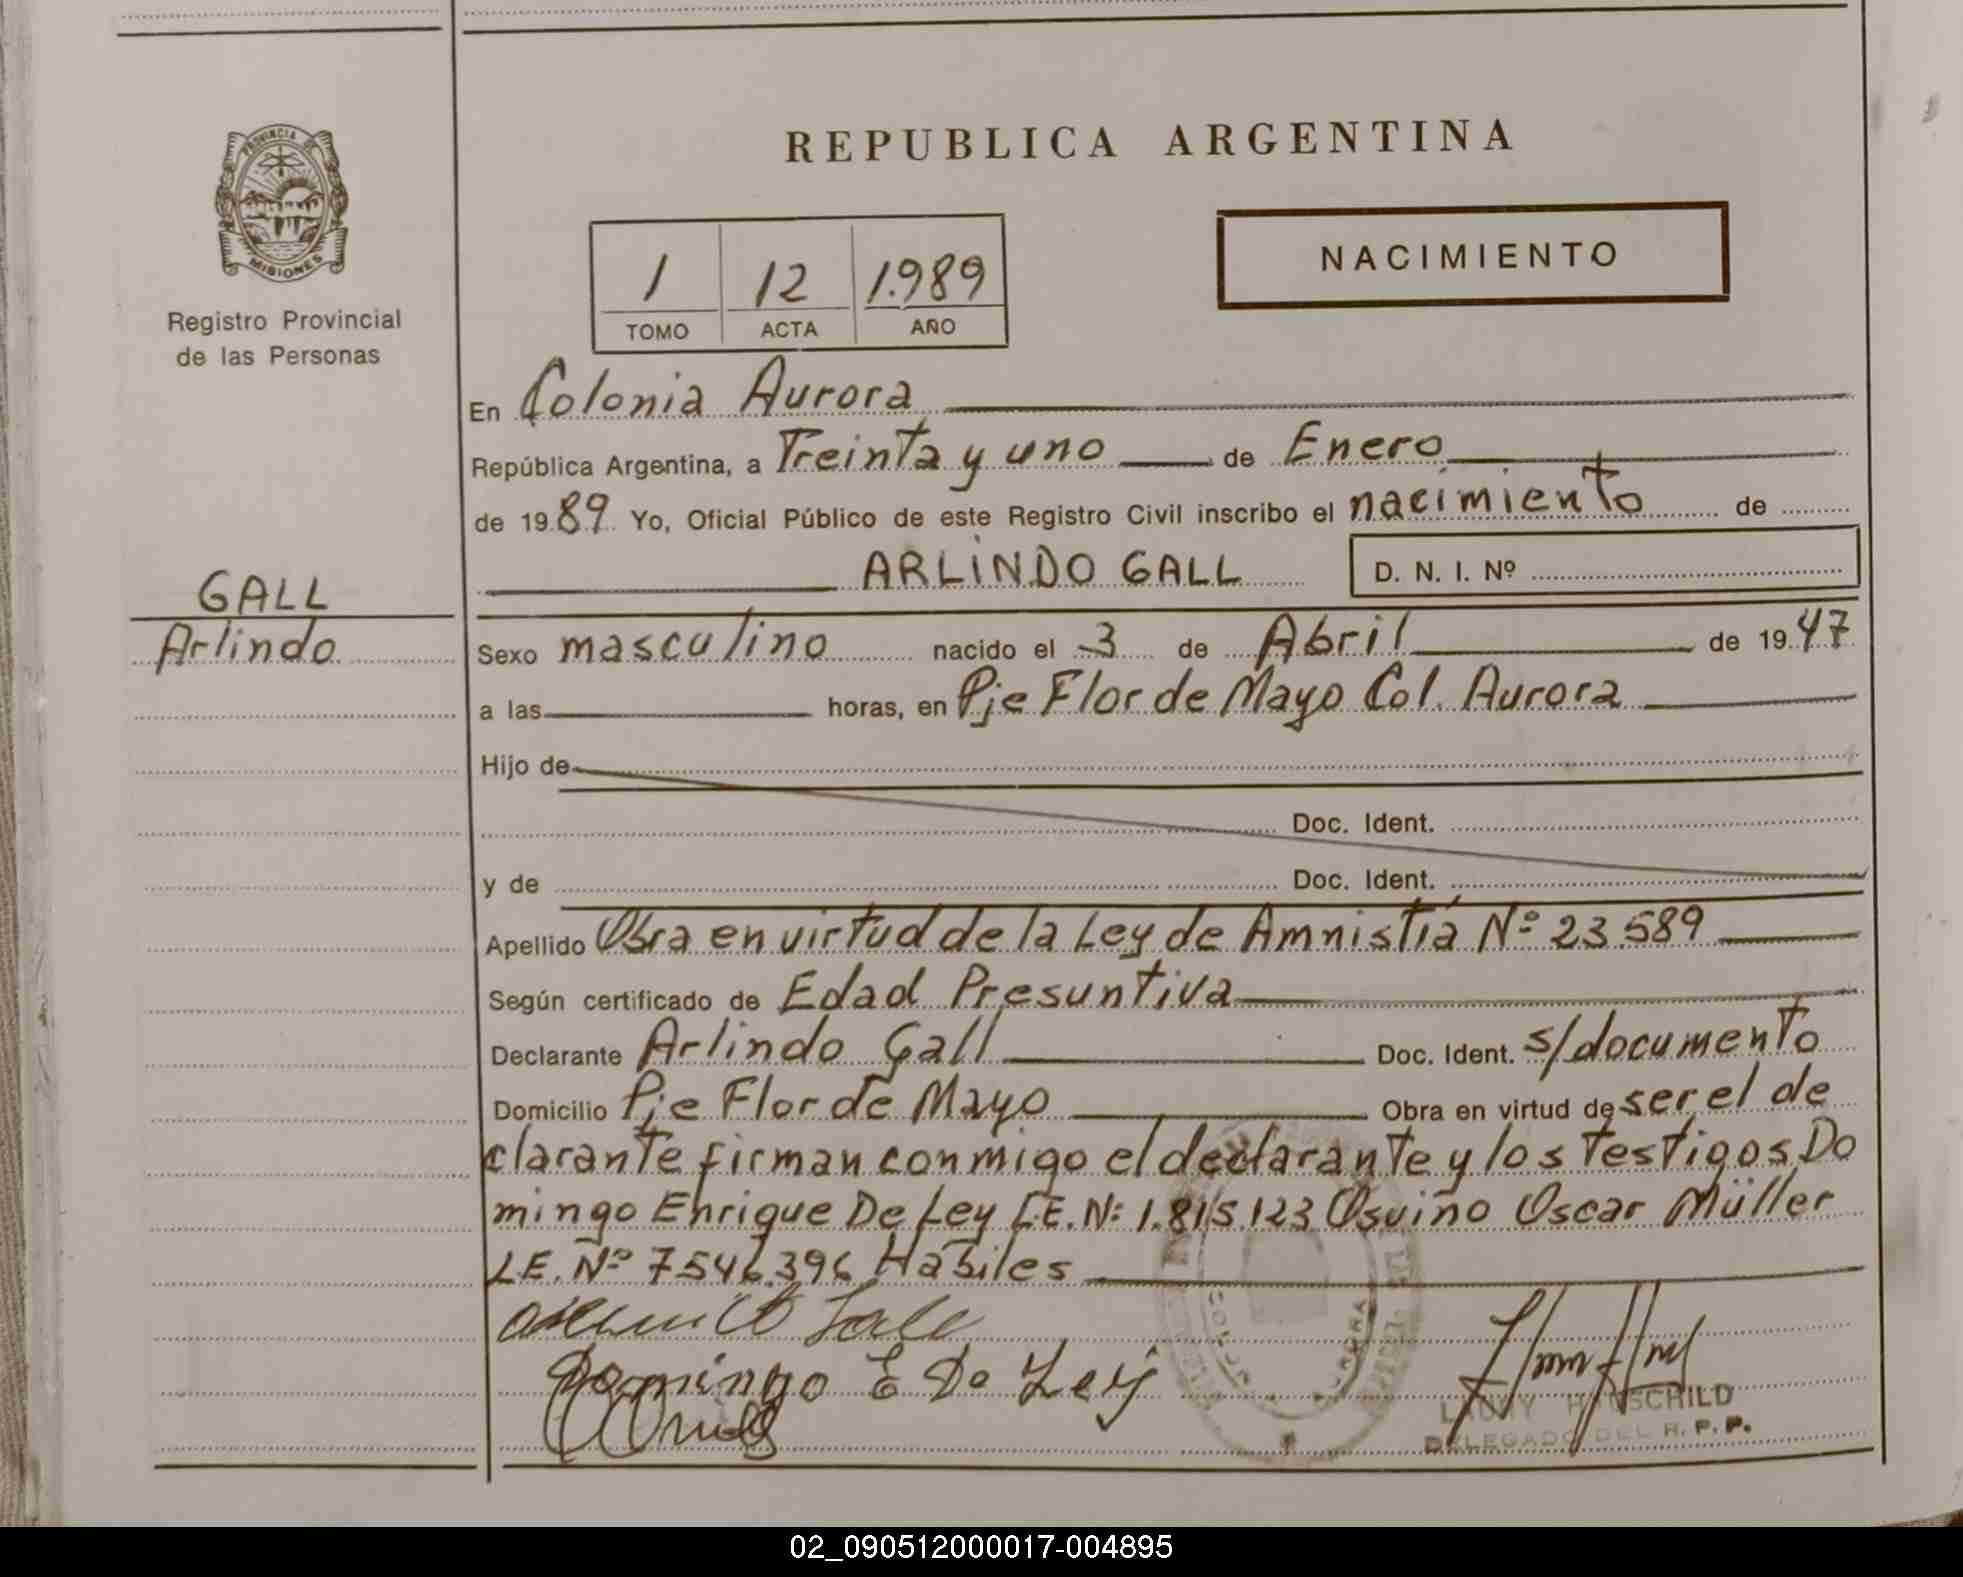 PROVINCIA DE
MISIONES
Registro Provincial
de las Personas
GALL
Arlindo
REPUBLICA ARGENTINA
1 12 1.989
TOMO ACTA AÑO
NACIMIENTO
En Colonia Aurora
República Argentina, a Treinta y uno de Enero
de 1989 Yo, Oficial Público de este Registro Civil inscribo el nacimiento de
ARLINDO GALL D. N. I. Nº
Sexo masculino nacido el 3 de Abril de 1947
a las horas, en Pje Flor de Mayo Col. Aurora
Hijo de
Doc. Ident.
y de Doc. Ident.
Apellido Obra en virtud de la Ley de Amnistía Nº 23.589
Según certificado de Edad Presuntiva
Declarante Arlindo Gall Doc. Ident. s/documento
Domicilio Pje Flor de Mayo Obra en virtud de ser el de
clarante firman conmigo el declarante y los testigos, Do
mingo Enrique De Ley C.E. Nº 1.815.123 Osvino Oscar Müller
L.E. Nº 7.546.396 Habiles
Domingo E De Ley
HAUSCHILD
DELEGADO DEL R. P. P.
02_090512000017-004895